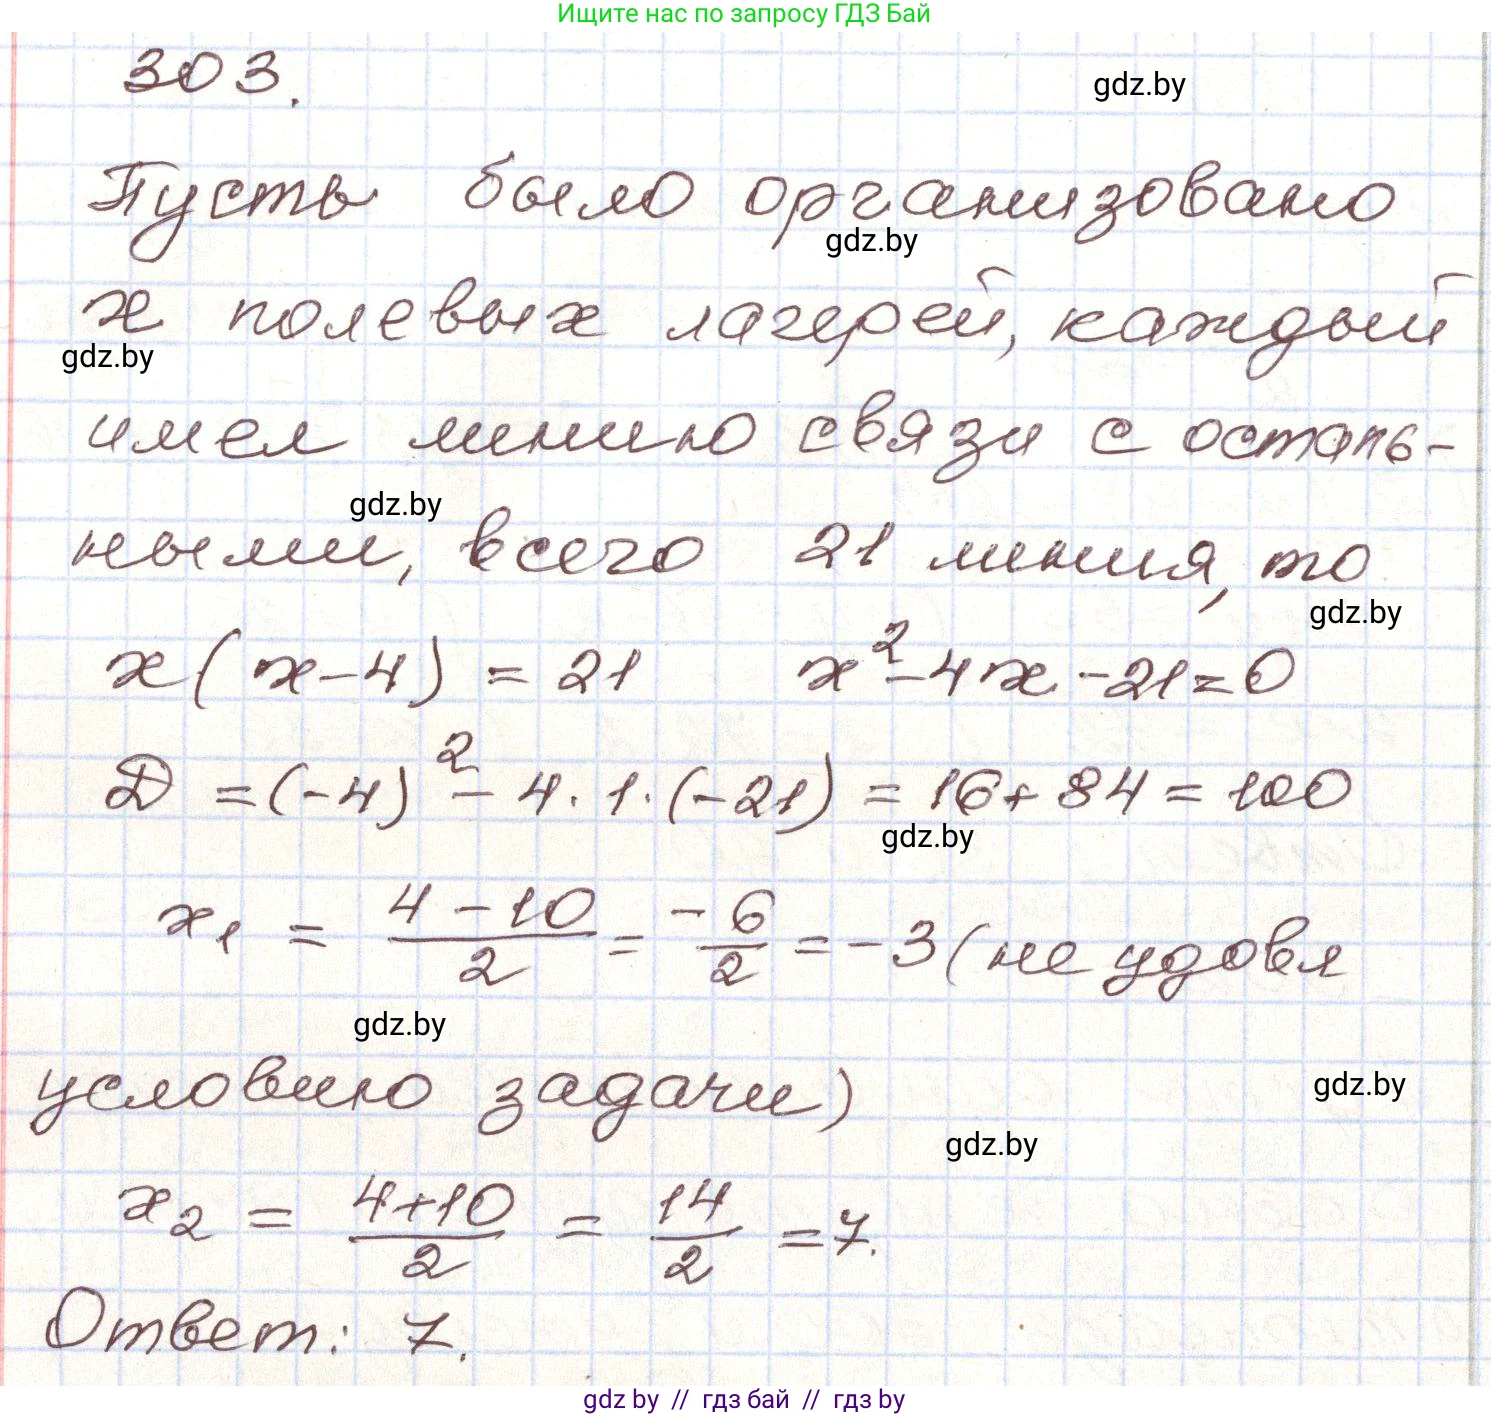 Ищите нас по запросу ГДЗ Бай
303.
gdz.by
Пусть было организовано
gdz.by
x полевых лагерей, каждый
gdz.by
имел линию связи с осталь-
gdz.by
ными, всего 21 линия, то
gdz.by
x(x-4) = 21 x²-4x-21=0
D = (-4)² - 4·1·(-21) = 16+84 = 100
gdz.by
x₁ = (4-10)/2 = -6/2 = -3 (не удовл
gdz.by
условию задачи)
gdz.by
gdz.by
x₂ = (4+10)/2 = 14/2 = 7.
Ответ: 7.
gdz.by // гдз бай // гдз by